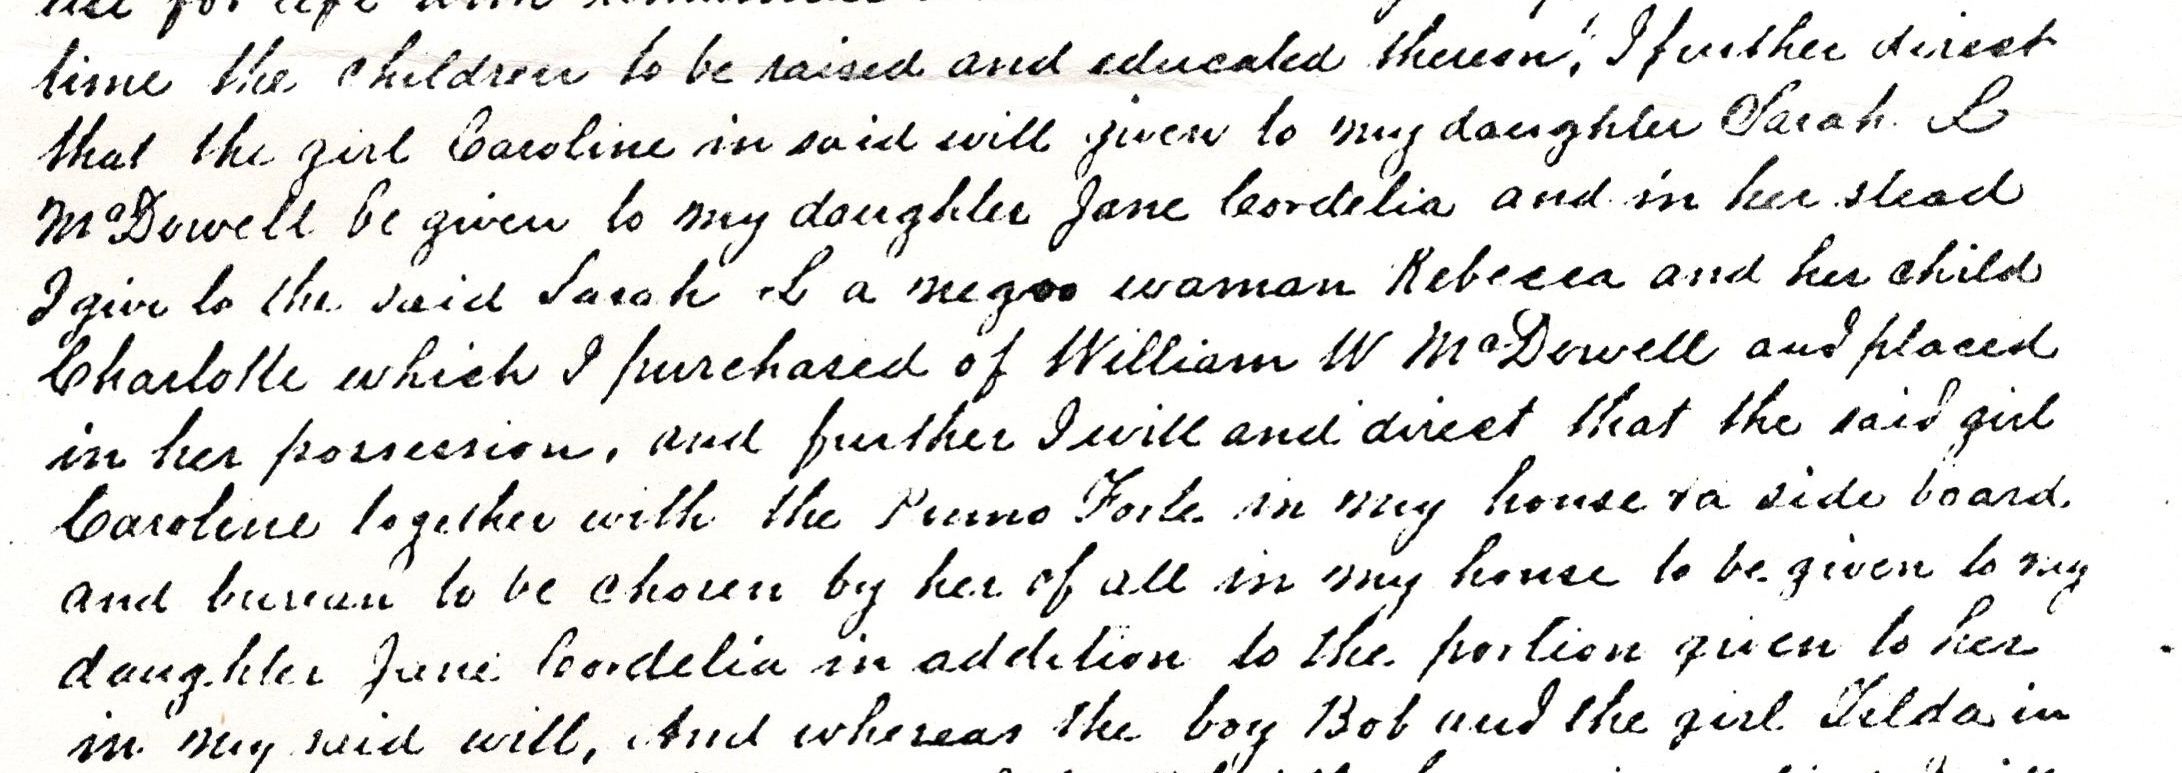 use for life with
time the children to be raised and educated therein, I further direct
that the girl Caroline in said will given to my daughter Sarah L
McDowell be given to my daughter Jane Cordelia and in her stead
I give to the said Sarah L a negro woman Rebecca and her child
Charlotte which I purchased of William W McDowell and placed
in her possession, and further I will and direct that the said girl
Caroline together with the Piano Forte in my house & a side board
and bureau to be chosen by her of all in my house to be given to my
daughter Jane Cordelia in addition to the portion given to her
in my said will, And whereas the boy Bob and the girl Tilda in